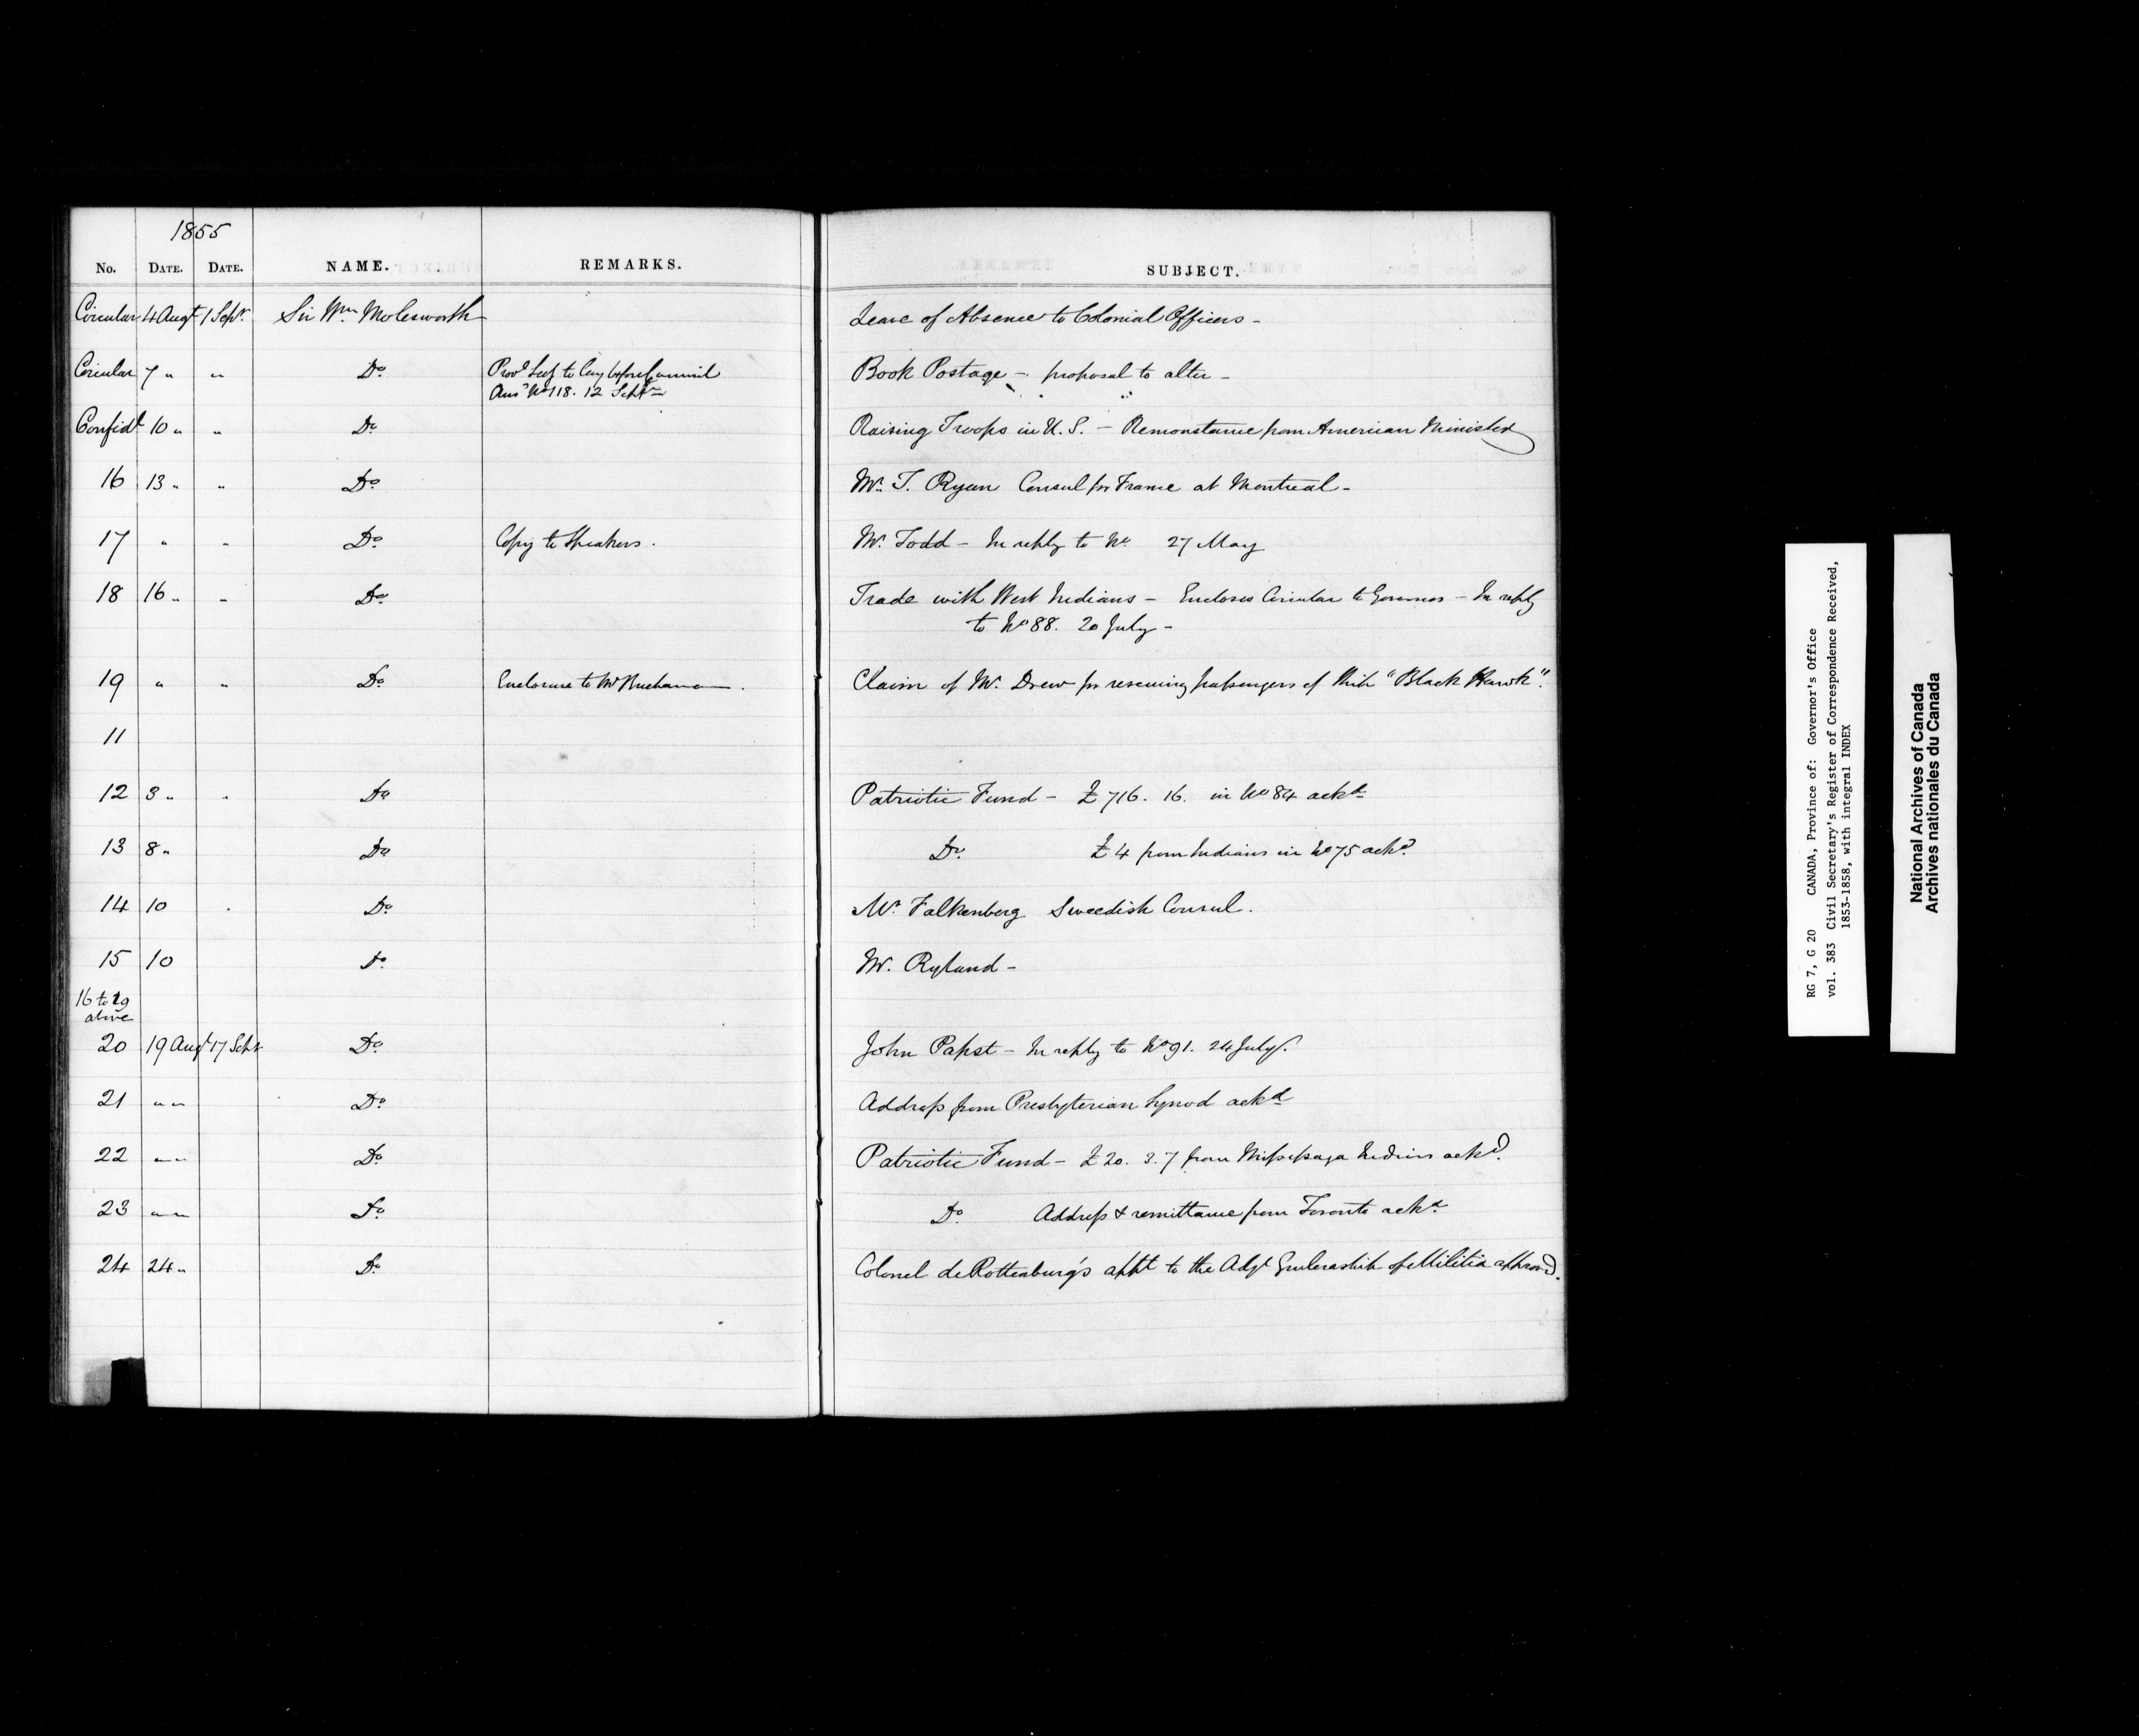 1855
No. DATE. DATE. NAME. REMARKS. SUBJECT.
Circular 4 Augt 1 Sepr. Sir Wm Molesworth Leave of Absence to Colonial Officers -
Circular 7 " " Do Provl Secy to lay before Council Book Postage - proposal to alter -
Ansd No 118. 12 Septr
Confidl 10 " " Do Raising Troops in U.S. - Remonstance from American Minister
16 13 " " Do Mr. T. Ryan Consul for France at Montreal -
17 " " Do Copy to Speakers. Mr. Todd - In reply to No 27 May
18 16 " " Do Trade with West Indians - Encloses Circular to Governors - In reply
to No 88. 20 July -
19 " " Do Enclosure to Mr Buchanan. Claim of Mr. Drew for rescuing passengers of Ship "Black Hawk".
11
12 3 " " Do Patriotic Fund - £716. 16. in No 84 ackd
13 8 " Do Do. £4 from Indians in No 75 ackd.
14 10 " Do Mr. Falkenberg Sweedish Consul.
15 10 Do Mr. Ryland -
16 to 19
above
20 19 Augt 17 Sept Do John Papst - In reply to No 91. 24 July.
21 " " Do Address from Presbyterian Synod ackd
22 " " Do Patriotic Fund - £20. 3. 7 from Missisaga Indians ackd.
23 " " Do Do. Address & remittance from Toronto ackd.
24 24 " Do Colonel de Rottenburg's appt to the Adjt Genleralship of Militia approvd.
RG 7, G 20 CANADA, Province of: Governor's Office
vol. 383 Civil Secretary's Register of Correspondence Received,
1853-1858, with integral INDEX
National Archives of Canada
Archives nationales du Canada